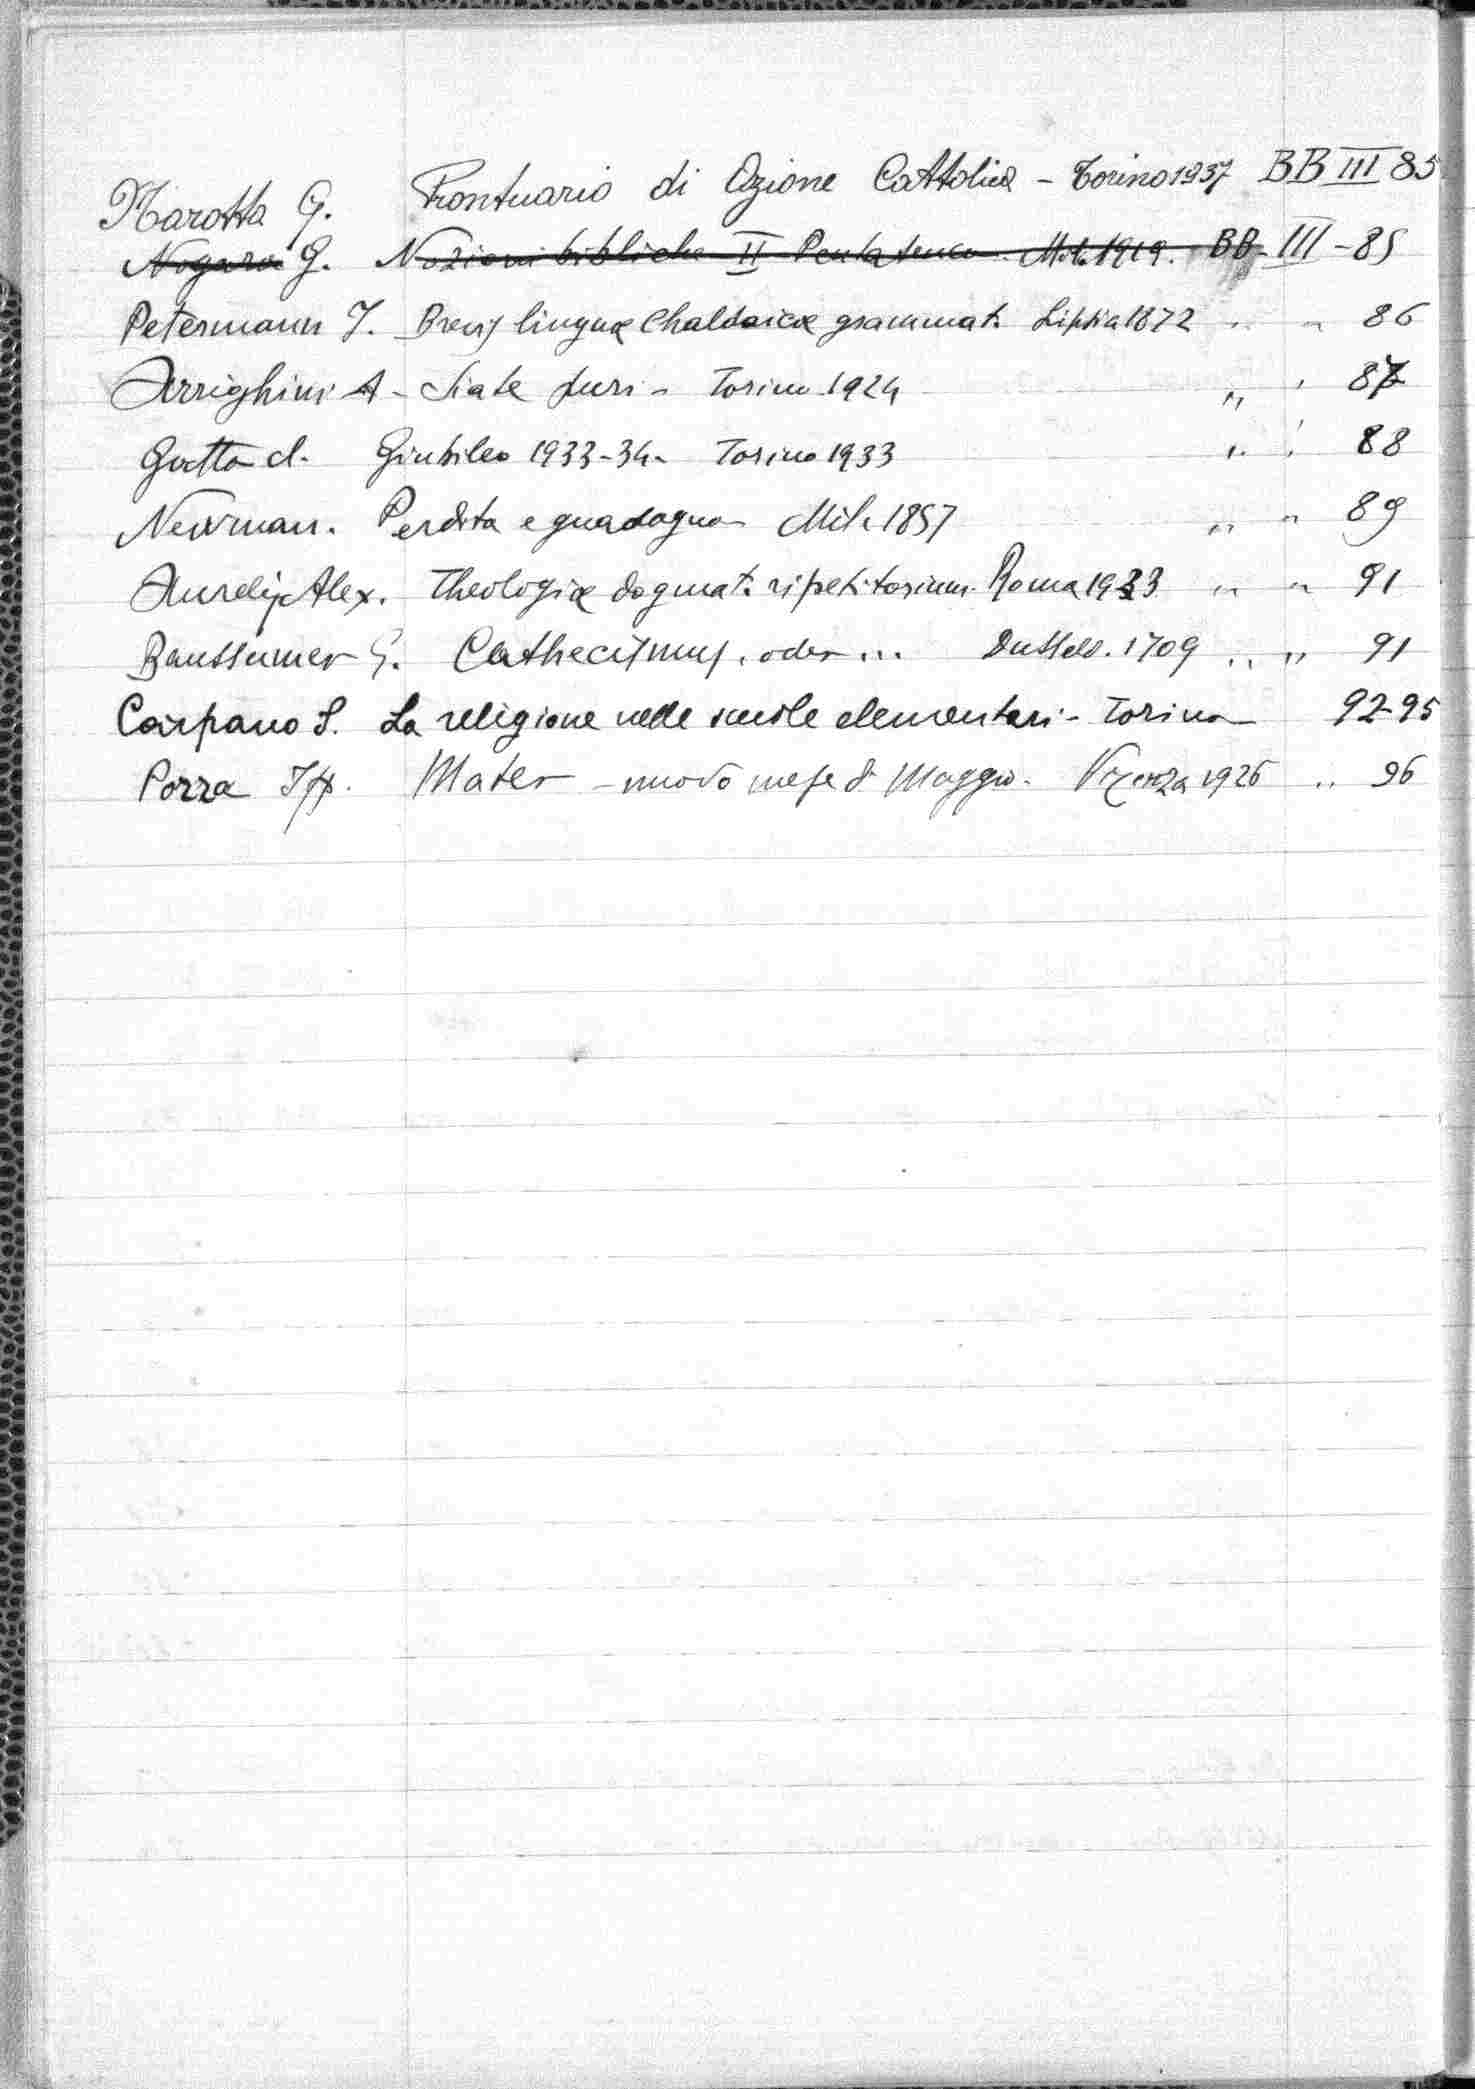 Marotta G. Prontuario di Azione Cattolica - Torino 1937 BB III 85
Nogara G. Nozioni bibliche II Pentateuco Mil. 1919. BB - III - 85
Petermann J. Brevis linguæ Chaldaicæ grammat. Lipsia 1872 " " 86
Arrighini A - Siate puri - Torino 1924 " " 87
Gatta d. Giubileo 1933-34 - Torino 1933 " " 88
Newman. Perdita e guadagno Mil. 1857 " " 89
Aurelius Alex. Theologiæ dogmat. ripetitorium. Roma 1933 " " 91
Baussumer G. Cathecismus, oder ... Dusseld. 1709 " " 91
Carpano S. La religione nelle scuole elementari - Torino 92-95
Pozza Mater - nuovo mese di Maggio. Vicenza 1926 " 96